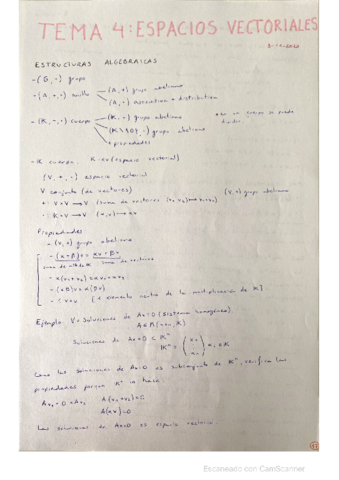 TEMA 4: ESPACIOS VECTORIALES
ESTRUCTURAS ALGEBRAICAS
- (G, ·) grupo
- (A, +, ·) anillo
(A, +) grupo abeliano
(A, ·) asociativa + distributiva
- (K, +, ·) cuerpo
(K, +) grupo abeliano
(K\{0}, ·) grupo abeliano
+ propiedades
en un cuerpo se puede dividir
- K cuerpo K-ev (espacio vectorial)
(V, +, ·) espacio vectorial
V conjunto (de vectores)
(V, +) grupo abeliano
+: V×V → V (suma de vectores (v₁, v₂) → v₁+v₂)
·: K×V → V (α, v) → αv
Propiedades:
- (V, +) grupo abeliano
- (α+β)v = αv + βv
suma de vectores
- α(v₁+v₂) = αv₁ + αv₂
- (αβ)v = α(βv)
- 1·v = v (1 elemento neutro de la multiplicación de K)
Ejemplo: V = Soluciones de Ax=0 (sistema homogéneo)
Soluciones de Ax=0 ⊂ Kⁿ
Como las soluciones de Ax=0 es subconjunto de Kⁿ, verifica las
propiedades porque Kⁿ lo hace.
Ax₁ = 0 = Ax₂
A(x₁+x₂) = 0
A(αx) = 0
Las soluciones de Ax=0 es espacio vectorial.
Escaneado con CamScanner